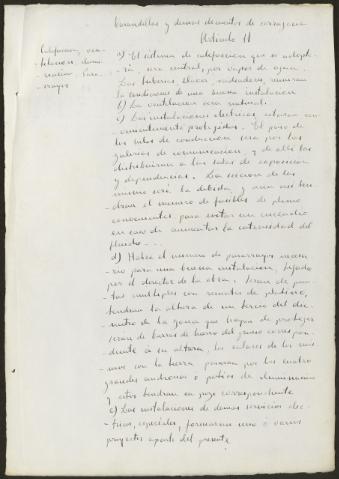 barandillas y demas elementos de cerrajeria
Articulo 11
Calefaccion, ven-
tilacion, ilumi-
nacion, Para-
rrayos
a) El sistema de calefaccion que se adopta-
rá sera central, por vapor de agua.
Las tuberias, llaves, radiadores, reuniran
las condiciones de una buena instalacion
b) La ventilacion sera natural.
c) Las instalaciones electricas estaran con-
venientemente protegidas. El paso de
los tubos de conduccion sera por las
galerias de comunicacion, y de alli las
distribuiran a las salas de exposicion
y dependencias. La seccion de los
mismos será la debida, y aun asi ten-
dran el numero de fusibles de plomo
convenientes para evitar un incendio
en caso de aumentar la intensidad del
fluido - - -
d) Habrá el numero de pararrayos necesa-
rio para una buena instalacion, fijado
por el director de la obra. Seran de pun-
tas multiples con remates de platino,
tendran la altura de un tercio del dia-
metro de la zona que hayan de proteger
seran de barras de hierro del grueso correspon-
diente á su altura, los enlaces de los mis-
mos con la tierra pasaran por los cuatro
grandes andrones o patios de iluminacion
y estos tendran su pozo correspondiente
e) Las instalaciones de demas servicios elec-
tricos, especiales, formaran uno o varios
proyectos aparte del presente.